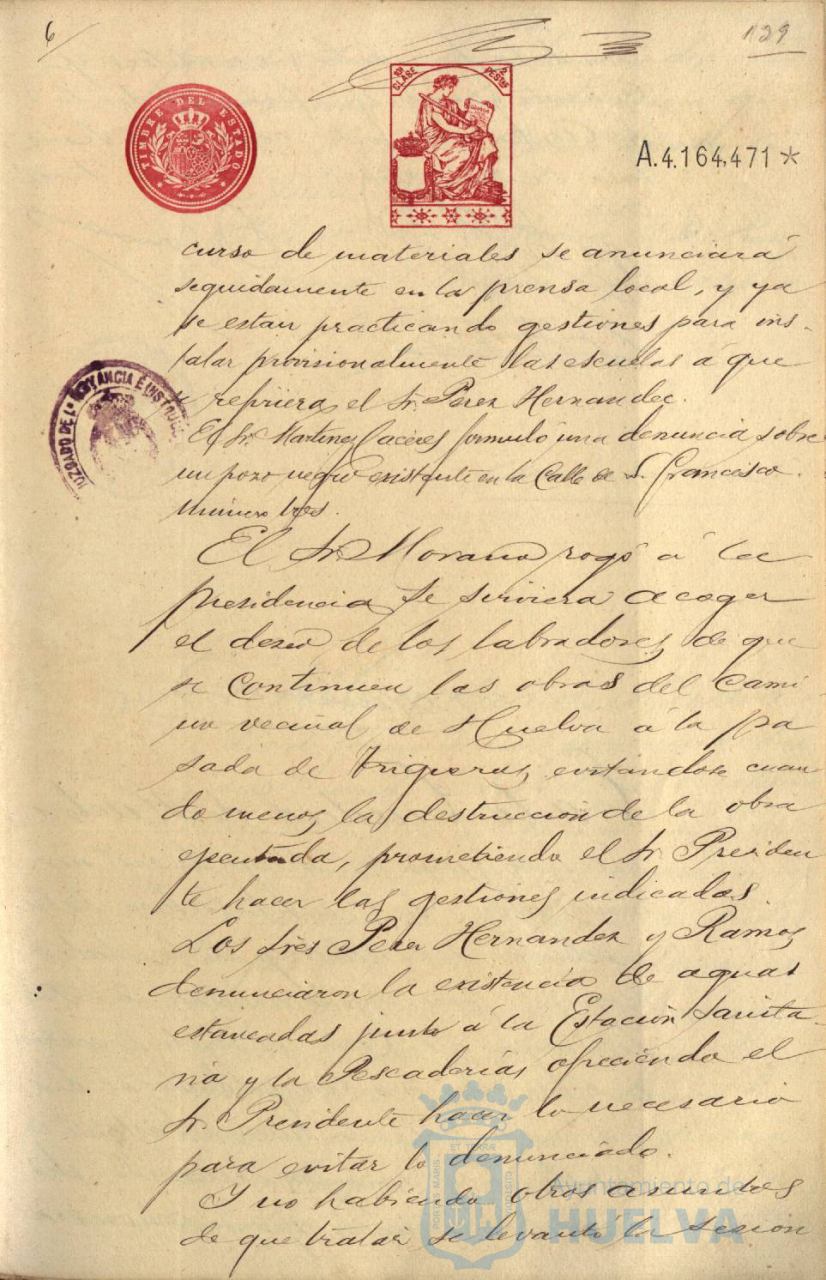 6
129
TIMBRE DEL ESTADO
10ª CLASE 2 PESTAS
A.4.164,471*
curso de materiales se anunciará
seguidamente en la prensa local, y ya
se estan practicando gestiones para ins-
talar provisionalmente las escuelas á que
se refiriera el Sr. Perez Hernandez.
JUZGADO DE 1ª INSTANCIA É INSTRUC
El Sr. Martinez Caceres formuló una denuncia sobre
un pozo negro existente en la Calle de S. Francisco
número tres.
El Sr. Morano rogó á la
presidencia se sirviera acoger
el deseo de los labradores de que
se continuen las obras del cami
no vecinal de Huelva á la pa
sada de Trigueros, evitándose cuan
do menos la destrucción de la obra
ejecutada, prometiendo el Sr. Presiden
te hacer las gestiones indicadas.
Los Sres Perez Hernandez y Ramos
denunciaron la existencia de aguas
estancadas junto á la Estación Sanita-
ria y la Pescaderías ofreciendo el
Sr. Presidente hacer lo necesario
para evitar lo denunciado.
Y no habiendo otros asuntos
de que tratar se levantó la sesion
Ayuntamiento de
HUELVA